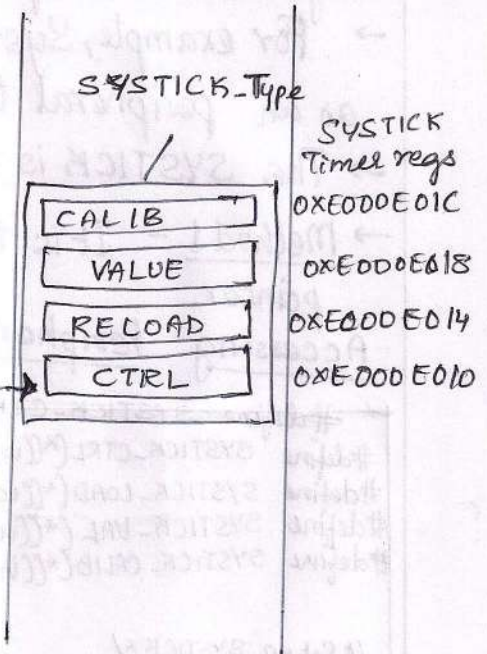 SYSTICK_Type
SYSTICK
Timer regs
CALIB
0XE000E01C
VALUE
0XE000E018
RELOAD
0XE000E014
CTRL
0XE000E010